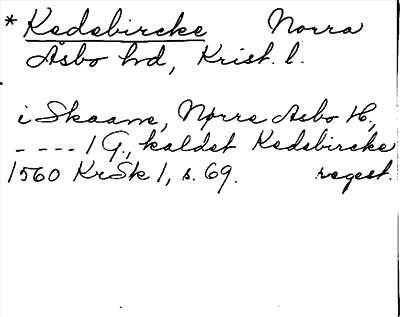 * Kedebircke Norra
Åsbo hd, Krist. l.
i Skaane, Nørre Asbo H.,
---- 1 G., kaldet Kedebircke
1560 KrSk 1, s. 69. regest.